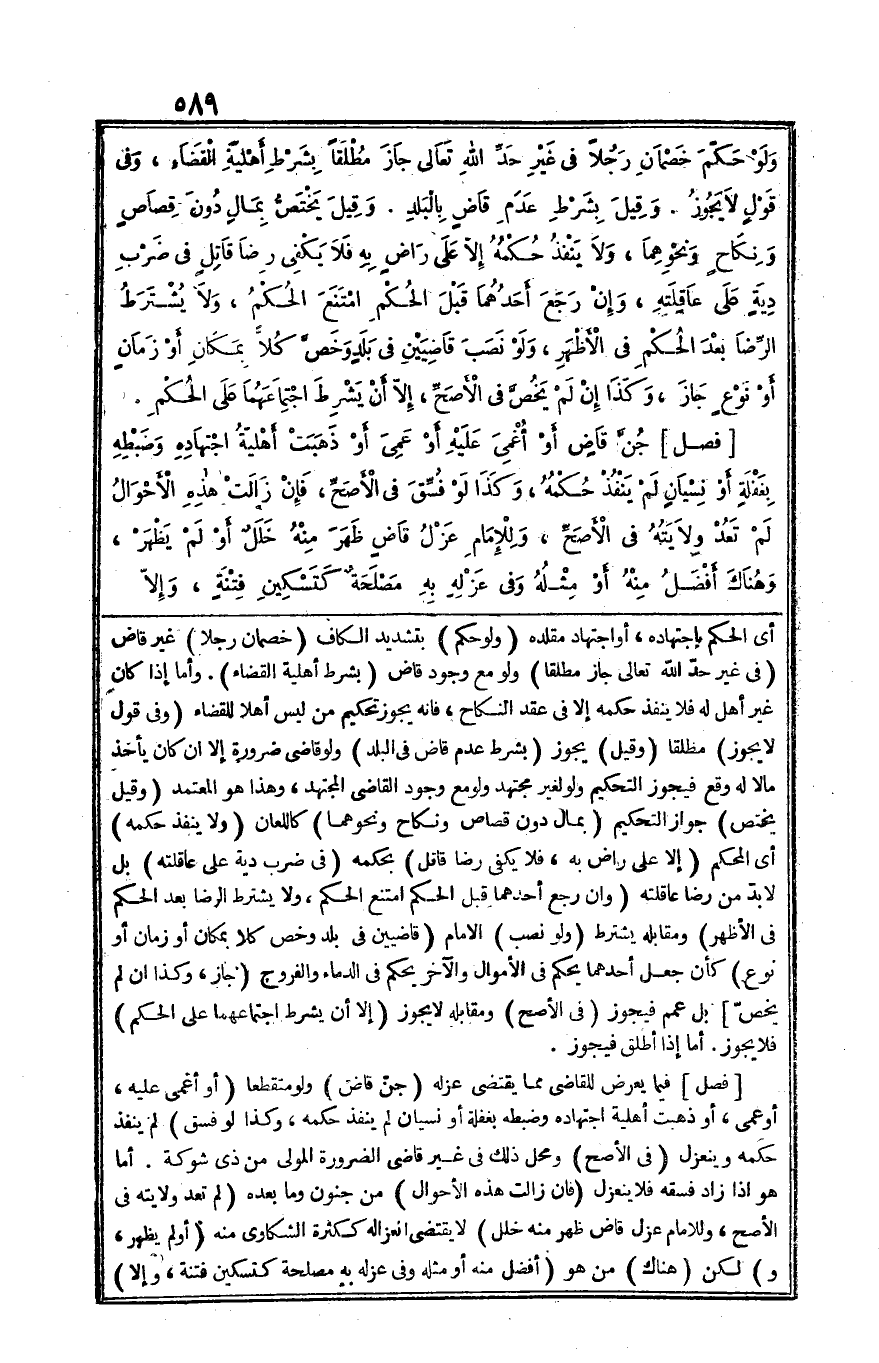 ٥٨٩
وَلَوْ حَكَّمَ خَصْمَانِ رَجُلاً فى غَيْرِ حَدِّ اللهِ تَعَالى جَازَ مُطْلَقاً بِشَرْطِ أَهْلِيَّةِ الْقَضَاءِ ، وَفى
قَوْلٍ لاَ يَجُوزُ . وَقِيلَ بِشَرْطِ عَدَمِ قَاضٍ بِالْبَلَدِ . وَقِيلَ يَخْتَصُّ بِمَالٍ دُونَ قِصَاصٍ
وَنِكَاحٍ وَنَحْوِهِمَا ، وَلاَ يَنْفُذُ حُكْمُهُ إِلاَّ عَلَى رَاضٍ بِهِ فَلاَ يَكْفِى رِضَا قَاتِلٍ فى ضَرْبِ
دِيَةٍ عَلَى عَاقِلَتِهِ ، وَإِنْ رَجَعَ أَحَدُهُمَا قَبْلَ الْحُكْمِ امْتَنَعَ الْحُكْمُ ، وَلاَ يُشْتَرَطُ
الرِّضَا بَعْدَ الْحُكْمِ فى الْأَظْهَرِ ، وَلَوْ نَصَبَ قَاضِيَيْنِ فى بَلَدٍ وَخَصَّ كُلاًّ بِمَكَانٍ أَوْ زَمَانٍ
أَوْ نَوْعٍ جَازَ ، وَكَذَا إِنْ لَمْ يَخُصَّ فى الْأَصَحِّ ، إِلاَّ أَنْ يَشْرِطَ اجْتِمَاعَهُمَا عَلَى الْحُكْمِ .
[ فصل ] جُنَّ قَاضٍ أَوْ أُغْمِىَ عَلَيْهِ أَوْ عَمِىَ أَوْ ذَهَبَتْ أَهْلِيَّةُ اجْتِهَادِهِ وَضَبْطِهِ
بِغَفْلَةٍ أَوْ نِسْيَانٍ لَمْ يَنْفُذْ حُكْمُهُ ، وَكَذَا لَوْ فَسَقَ فى الْأَصَحِّ ، فَإِنْ زَالَتْ هٰذِهِ الْأَحْوَالُ
لَمْ تَعُدْ وِلاَيَتُهُ فى الْأَصَحِّ ، وَلِلْإِمَامِ عَزْلُ قَاضٍ ظَهَرَ مِنْهُ خَلَلٌ أَوْ لَمْ يَظْهَرْ ،
وَهُنَاكَ أَفْضَلُ مِنْهُ أَوْ مِثْلُهُ وَفى عَزْلِهِ بِهِ مَصْلَحَةٌ كَتَسْكِينِ فِتْنَةٍ ، وَإِلاَّ
أى الحكم بإجتهاده ، أواجتهاد مقلده ( ولوحكم ) بتشديد الكاف ( خصمان رجلا ) غير قاض
( فى غير حدّ الله تعالى جاز مطلقا ) ولو مع وجود قاض ( بشرط أهلية القضاء ) . وأما إذا كان
غير أهل له فلا ينفذ حكمه إلا فى عقد النكاح ، فانه يجوز تحكيم من ليس أهلا للقضاء ( وفى قول
لايجوز ) مطلقا ( وقيل ) يجوز ( بشرط عدم قاض فى البلد ) ولوقاضى ضرورة إلا ان كان يأخذ
مالا له وقع فيجوز التحكيم ولولغير مجتهد ولومع وجود القاضى المجتهد ، وهذا هو المعتمد ( وقيل
يختص ) جواز التحكيم ( بمال دون قصاص ونكاح ونحوهما ) كاللعان ( ولا ينفذ حكمه )
أى المحكم ( إلا على راض به ، فلا يكفى رضا قاتل ) بحكمه ( فى ضرب دية على عاقلته ) بل
لابدّ من رضا عاقلته ( وان رجع أحدهما قبل الحكم امتنع الحكم ، ولا يشترط الرضا بعد الحكم
فى الأظهر ) ومقابله يشترط ( ولو نصب ) الامام ( قاضيين فى بلد وخص كلا بمكان أو زمان أو
نوع ) كأن جعل أحدهما يحكم فى الأموال والآخر يحكم فى الدماء والفروج ( جاز ، وكذا ان لم
يخصّ ] بل عمم فيجوز ( فى الأصح ) ومقابله لايجوز ( إلا أن يشرط اجتماعهما على الحكم )
فلا يجوز . أما إذا أطلق فيجوز .
[ فصل ] فيما يعرض للقاضى مما يقتضى عزله ( جنّ قاض ) ولومتقطعا ( أو أغمى عليه ،
أوعمى ، أو ذهبت أهلية اجتهاده وضبطه بغفلة أو نسيان لم ينفذ حكمه ، وكذا لو فسق ) لم ينفذ
حكمه وينعزل ( فى الأصح ) ومحل ذلك فى غير قاضى الضرورة المولى من ذى شوكة . أما
هو اذا زاد فسقه فلا ينعزل ( فان زالت هذه الأحوال ) من جنون وما بعده ( لم تعد ولايته فى
الأصح ، وللامام عزل قاض ظهر منه خلل ) لايقتضى انعزاله ككثرة الشكاوى منه ( أولم يظهر ،
و ) لكن ( هناك ) من هو ( أفضل منه أو مثله وفى عزله به مصلحة كتسكين فتنة ، وإلا )